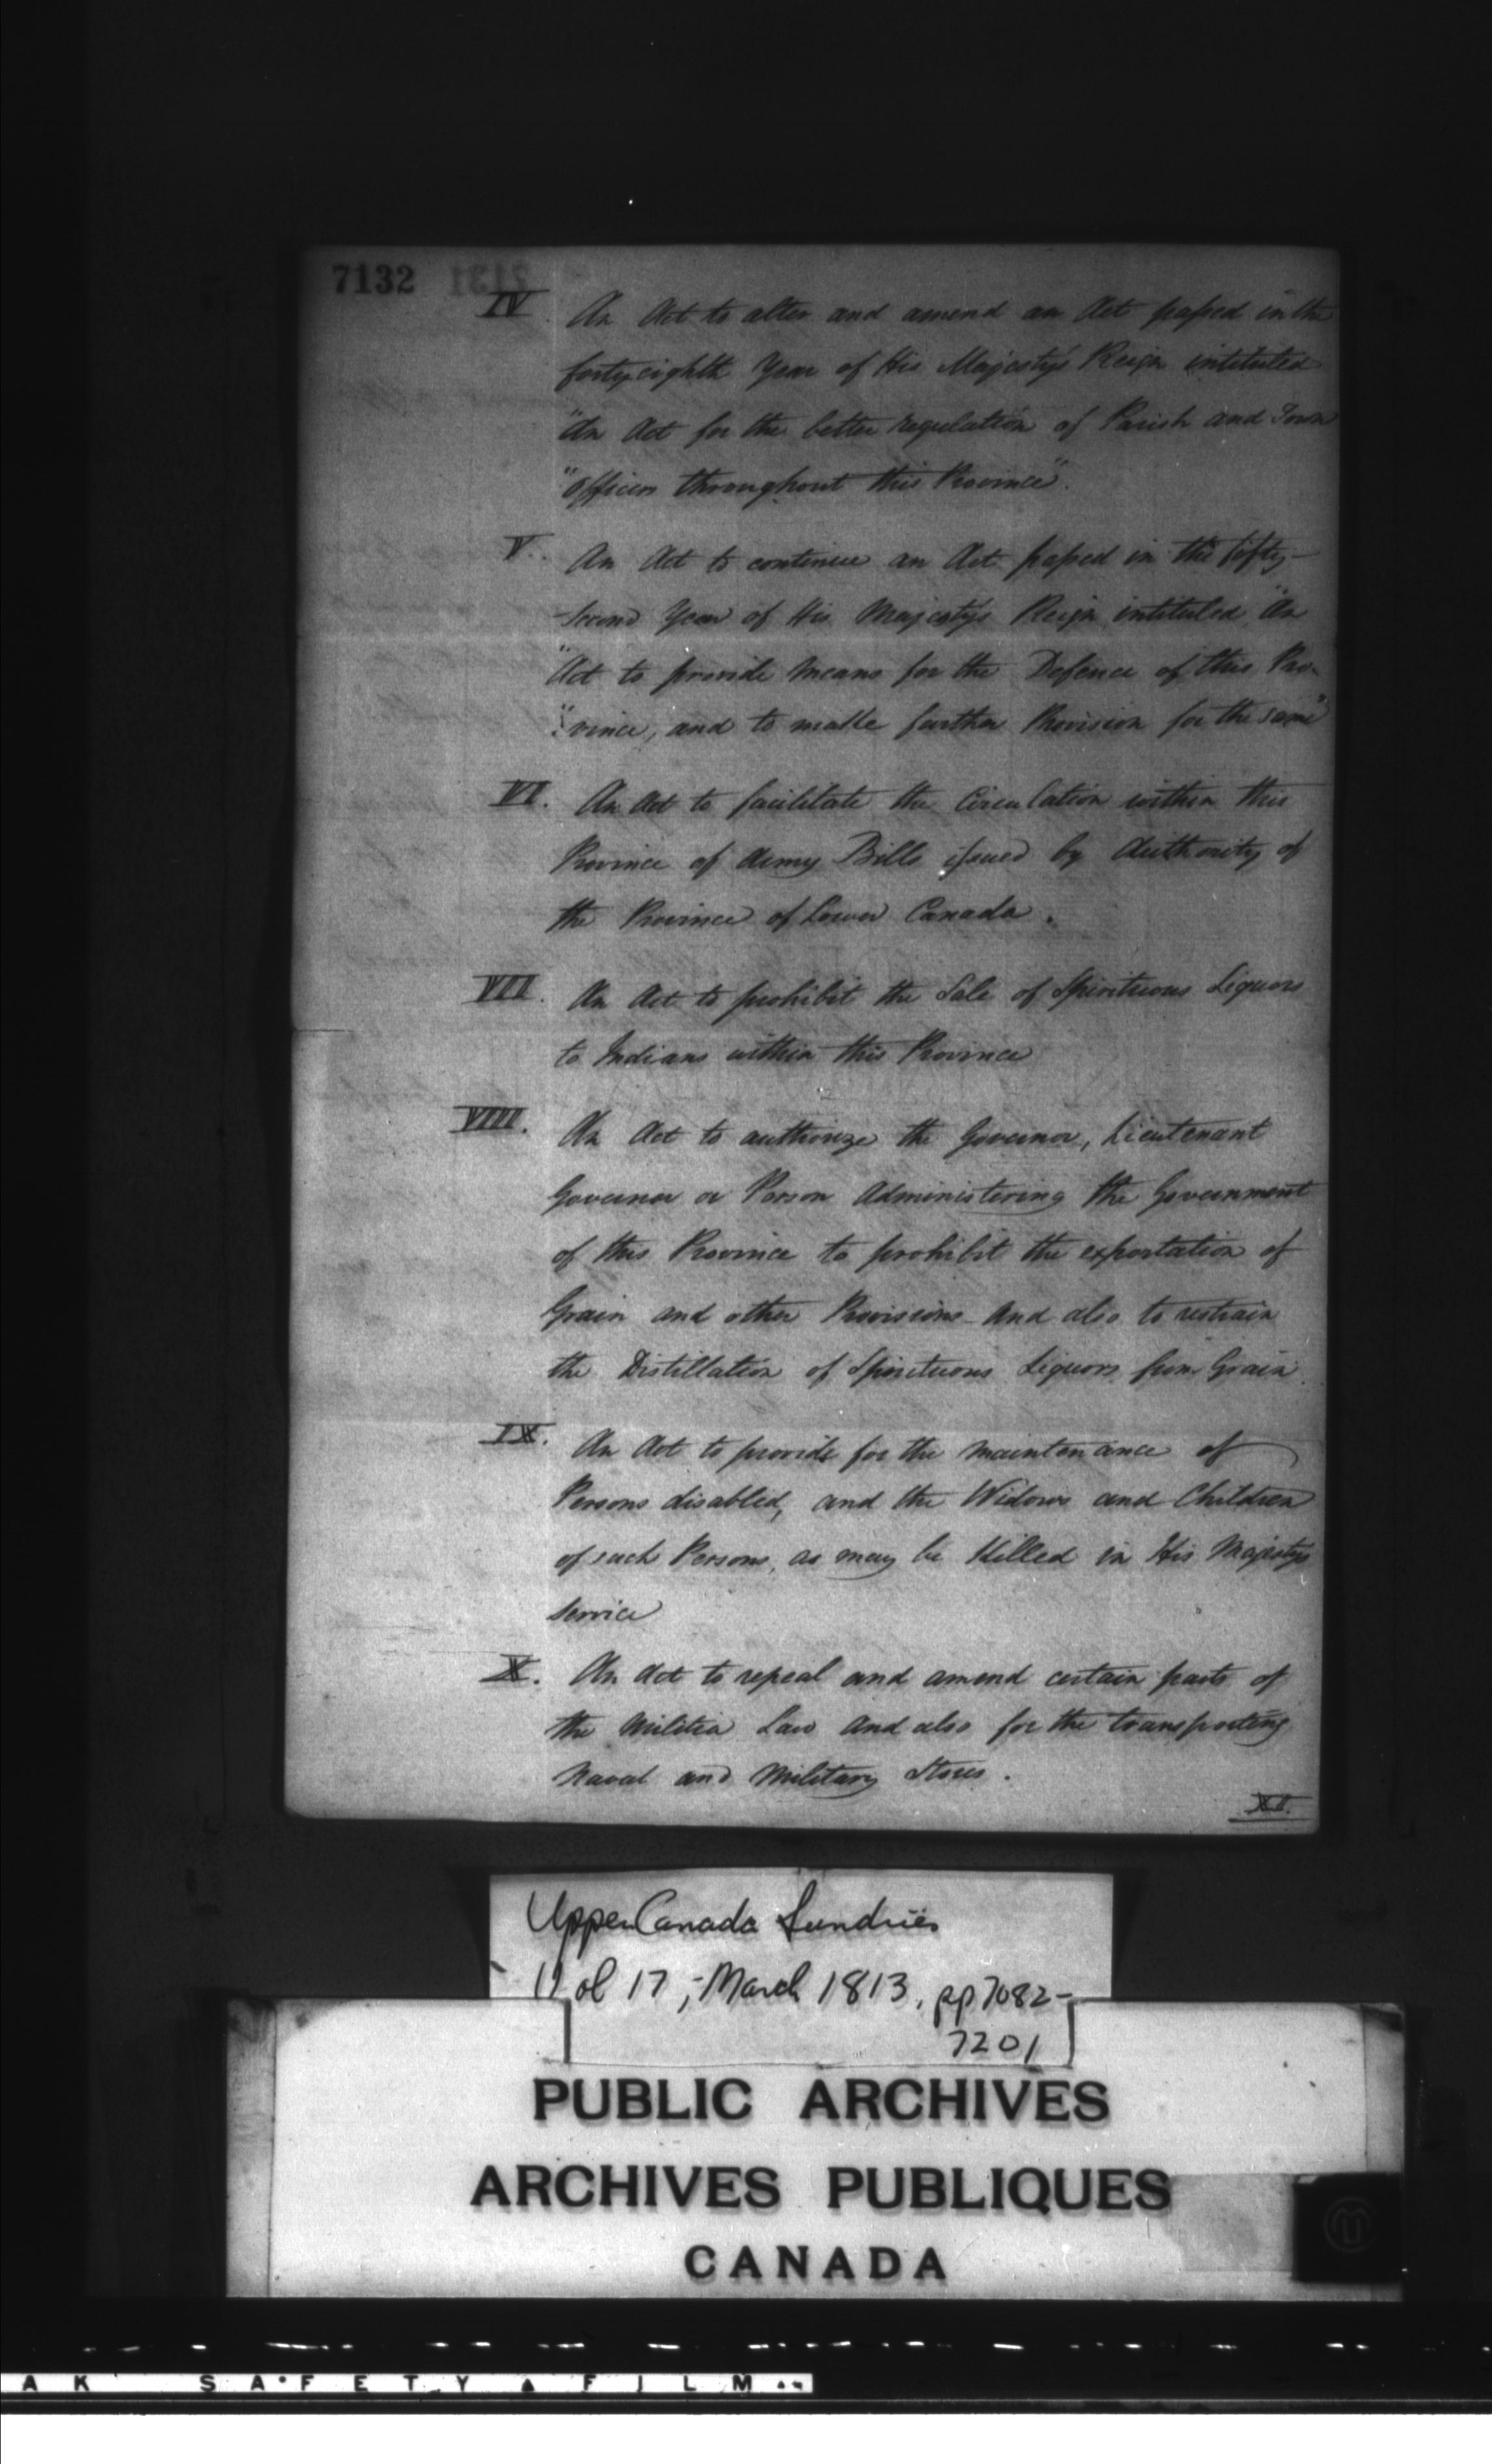 7132
IV. An Act to alter and amend an Act passed in the
forty eighth Year of His Majesty's Reign intituled
"An Act for the better regulation of Parish and Town
"Officers throughout this Province".
V. An Act to continue an Act passed in the fifty-
-second Year of His Majesty's Reign intituled "An
"Act to provide Means for the Defence of this Pro-
"vince, and to make further Provision for the same"
VI. An Act to facilitate the Circulation within this
Province of Army Bills issued by Authority of
the Province of Lower Canada.
VII. An Act to prohibit the Sale of Spirituous Liquors
to Indians within this Province
VIII. An Act to authorize the Governor, Lieutenant
Governor or Person Administering the Government
of this Province to prohibit the exportation of
Grain and other Provisions - And also to restrain
the Distillation of Spirituous Liquors from Grain.
IX. An Act to provide for the maintenance of
Persons disabled, and the Widows and Children
of such Persons, as may be Killed in His Majestys
Service
X. An Act to repeal and amend certain parts of
the Militia Law And also for the transporting
Naval and Military Stores.
XI.
Upper Canada Sundries
Vol 17, - March 1813, pp 7082-
7201
PUBLIC ARCHIVES
ARCHIVES PUBLIQUES
CANADA
AK SAFETY FILM